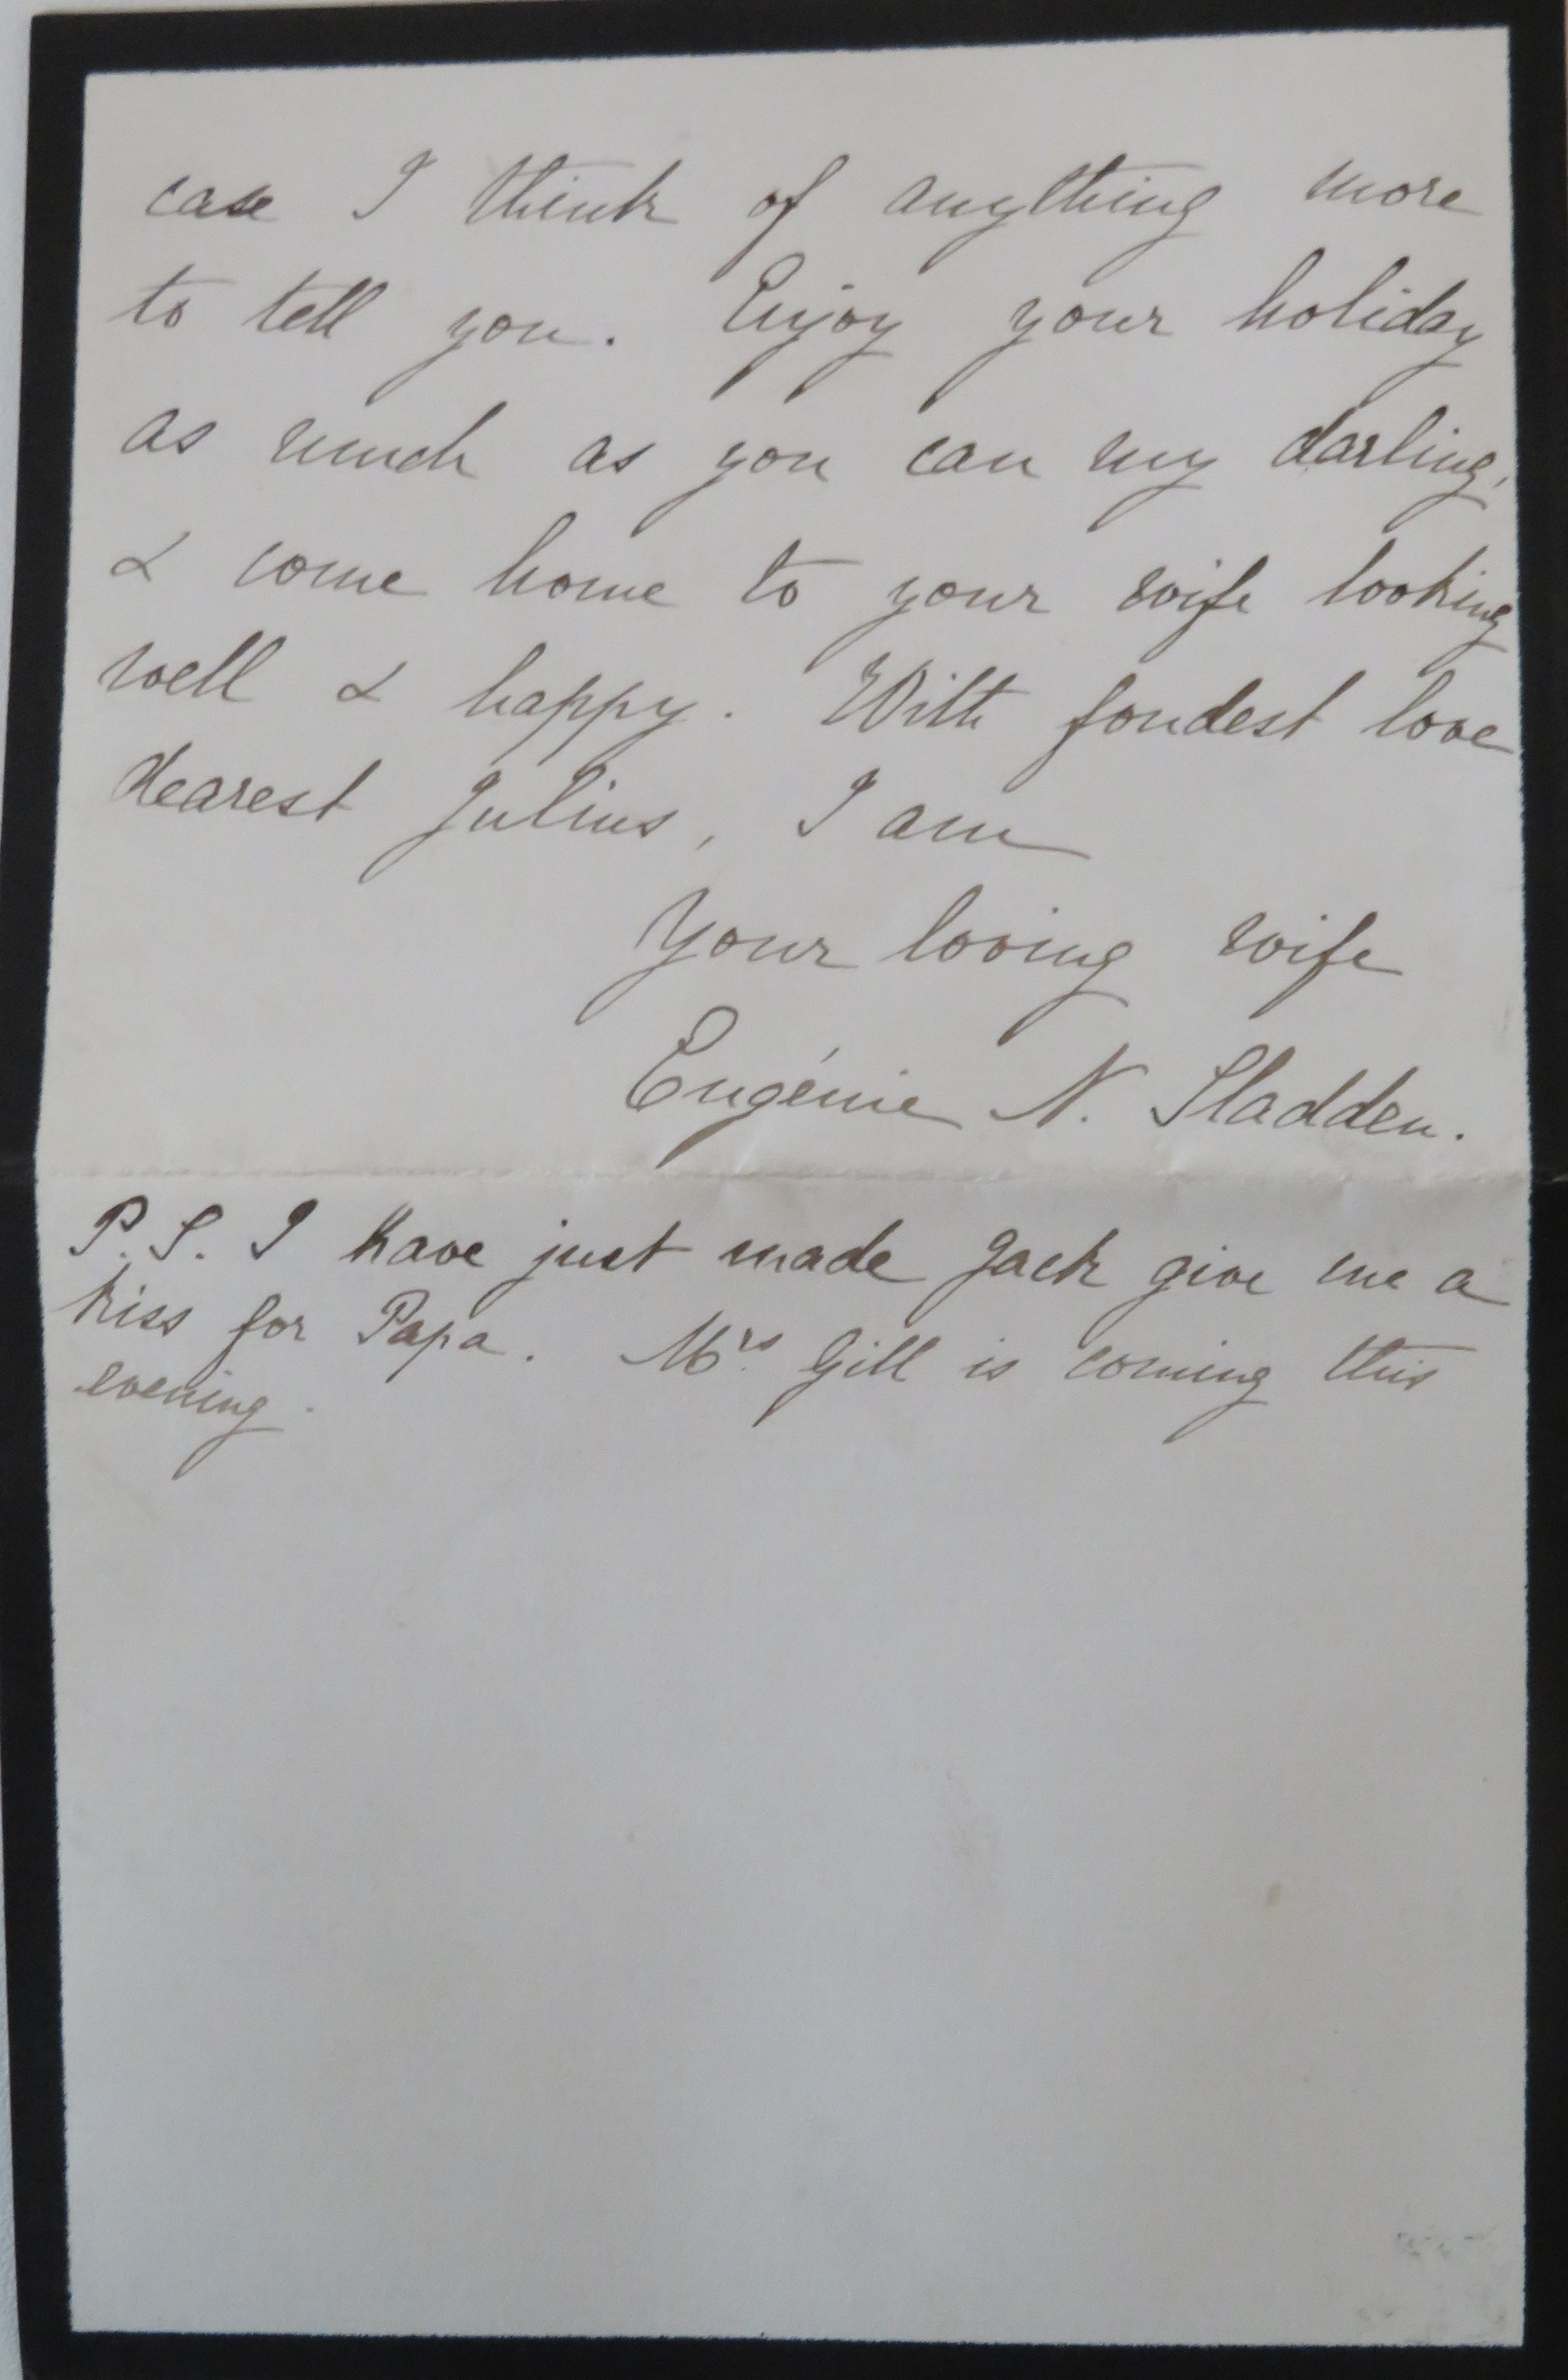 case I think of anything more
to tell you. Enjoy your holiday
as much as you can my darling,
& come home to your wife looking
well & happy. With fondest love
dearest Julius, I am
Your loving wife
Eugénie N. Sladden.
P.S. I have just made Jack give me a
kiss for Papa. Mrs. Gill is coming this
evening.